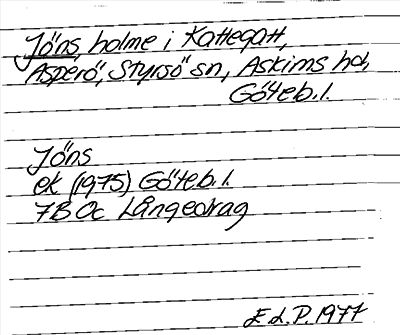 Jöns, holme i Kattegatt,
Asperö, Styrsö sn, Askims hd,
Göteb. l.
Jöns
ek (1975) Göteb. l.
7B 0c Långedrag
E d. P. 1977